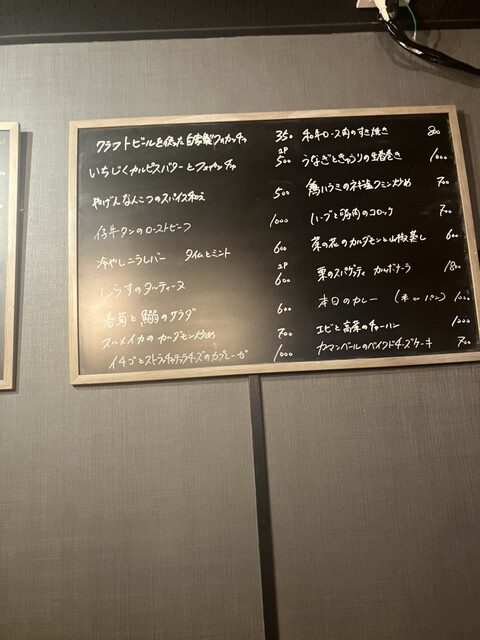 クラフトビールを使った自家製フォカッチャ 350
いちじくカルピスバターとフォカッチャ 2P 500
やげんなんこつのスパイス和え 500
仔牛タンのローストビーフ 1000
冷やしニラレバー タイムとミント 600
しらすのタルティーヌ 2P 600
春菊と鰯のサラダ 600
スルメイカのカルダモン炒め 700
イチゴとストラッチャテッラチーズのカプレーゼ 1000
和牛ロース肉のすき焼き 800
うなぎときゅうりの生春巻き 1000
鶏ハラミのネギ塩クミン炒め 700
ハーブと鶏肉のコロッケ 700
菜の花のカルダモンと山椒蒸し 600
栗のスパゲッティ カルボナーラ 1800
本日のカレー (米 or パン) 1000
エビと高菜のチャーハン 1000
カマンベールのベイクドチーズケーキ 700